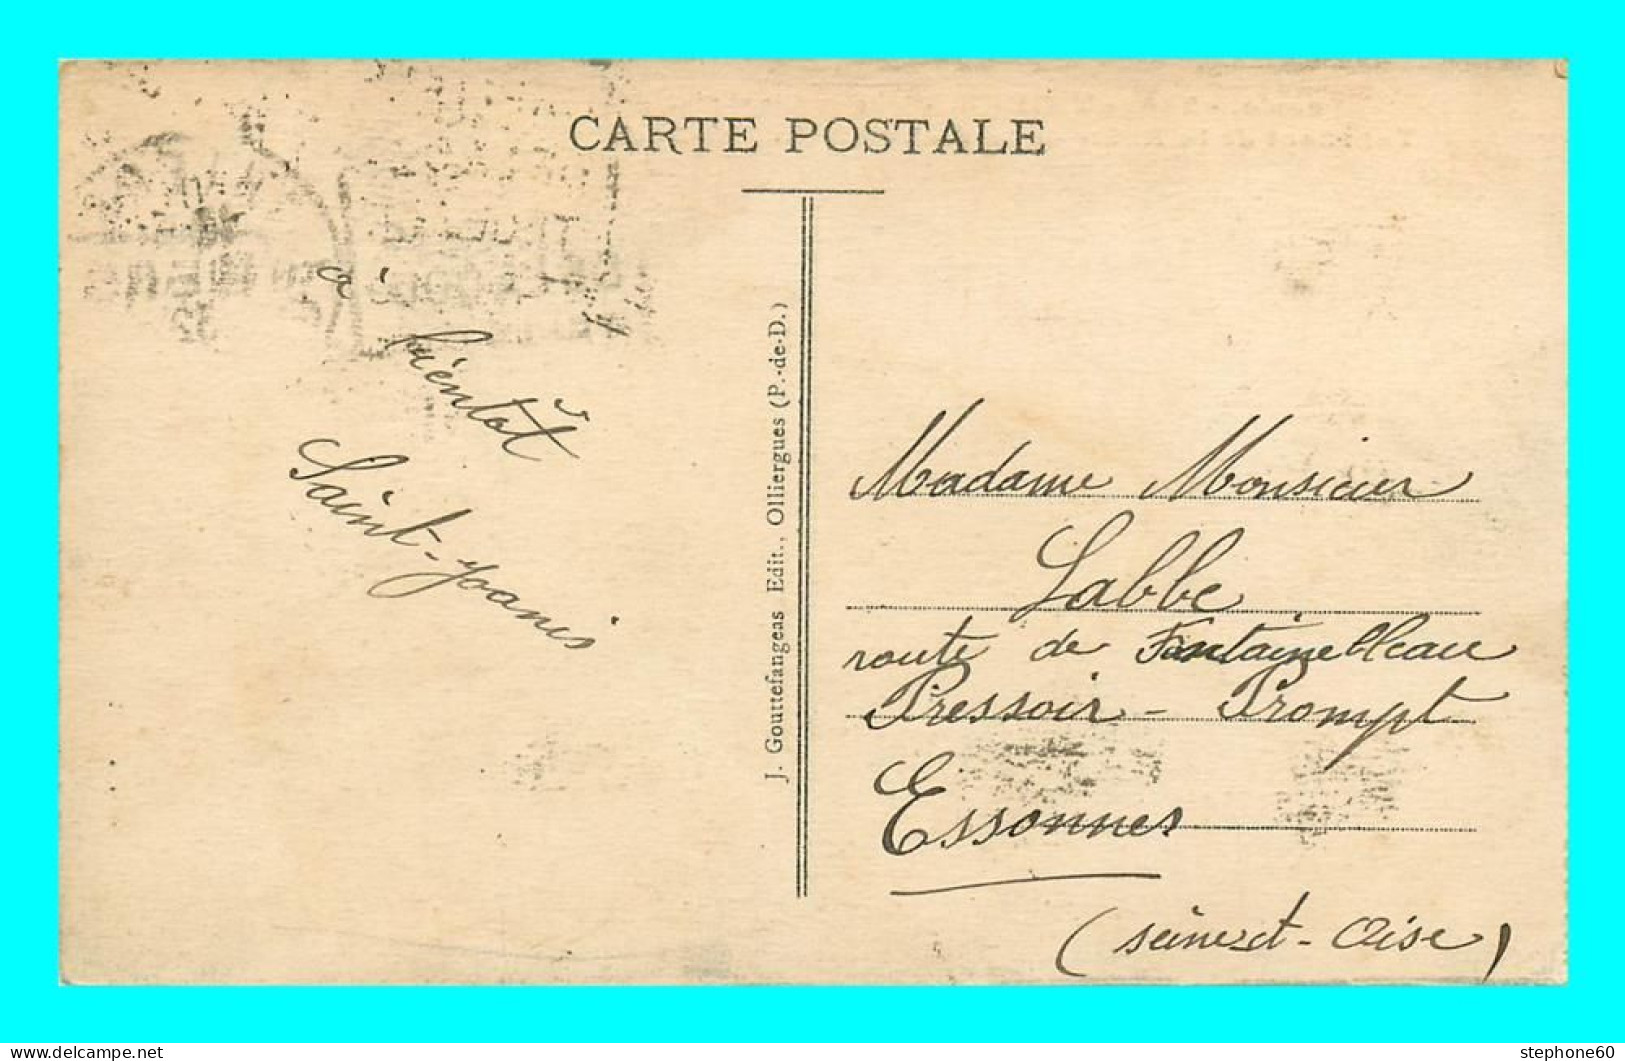 CARTE POSTALE
à
bientôt
Saint-Joanis
J. Gouttefangeas Edit., Olliergues (P.-de-D.)
Madame Monsieur
Labbe
route de Fontainebleau
Pressoir - Prompt
Essonnes
(Seine et - Oise)
stephone60